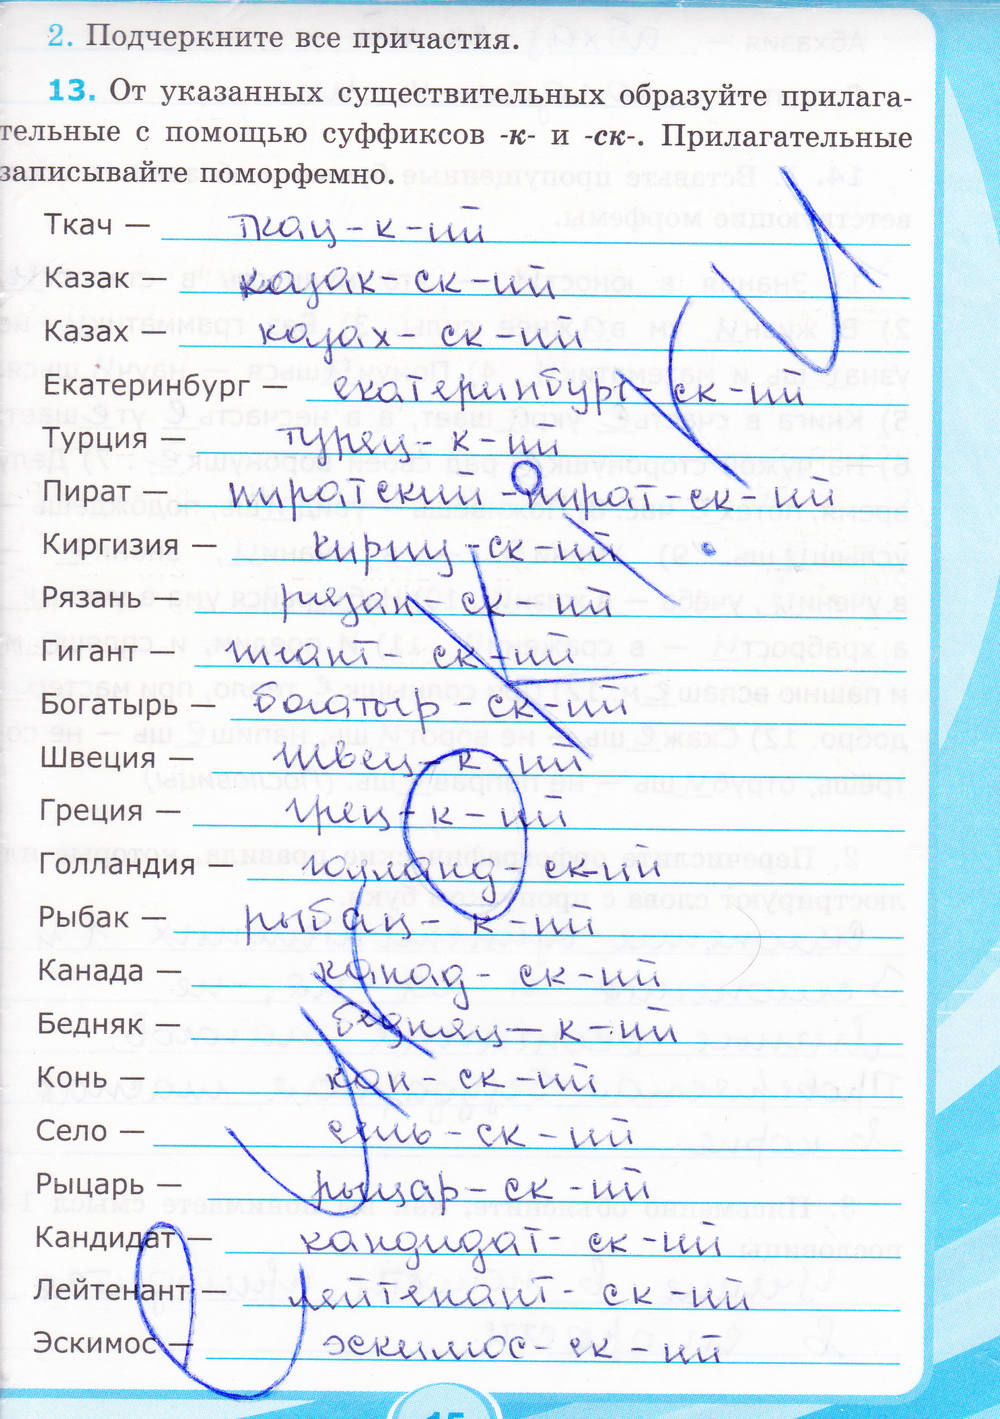 2. Подчеркните все причастия.
13. От указанных существительных образуйте прилага-
тельные с помощью суффиксов -к- и -ск-. Прилагательные
записывайте поморфемно.
Ткач — ткац - к - ий
Казак — казак - ск - ий
Казах — казах - ск - ий
Екатеринбург — екатеринбург - ск - ий
Турция — турец - к - ий
Пират — пиратский - пират - ск - ий
Киргизия — - ск - ий
Рязань — рязан - ск - ий
Гигант — гигант - ск - ий
Богатырь — богатыр - ск - ий
Швеция — швец - к - ий
Греция — грец - к - ий
Голландия — голланд - ск - ий
Рыбак — рыбац - к - ий
Канада — канад - ск - ий
Бедняк — бедняц - к - ий
Конь — кон - ск - ий
Село — сель - ск - ий
Рыцарь — рыцар - ск - ий
Кандидат — кандидат - ск - ий
Лейтенант — лейтенант - ск - ий
Эскимос — эскимос - ск - ий
15